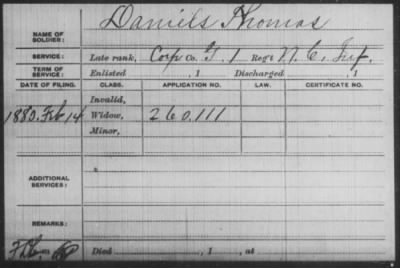 Daniels Thomas
NAME OF SOLDIER:
SERVICE: Late rank, Corp Co. G, 1 Reg't N. C. Inf.
TERM OF SERVICE: Enlisted , 1 Discharged , 1
DATE OF FILING. CLASS. APPLICATION NO. LAW. CERTIFICATE NO.
Invalid,
1880. Feb 14 Widow, 260.111
Minor,
ADDITIONAL SERVICES:
REMARKS:
Died , 1 , at